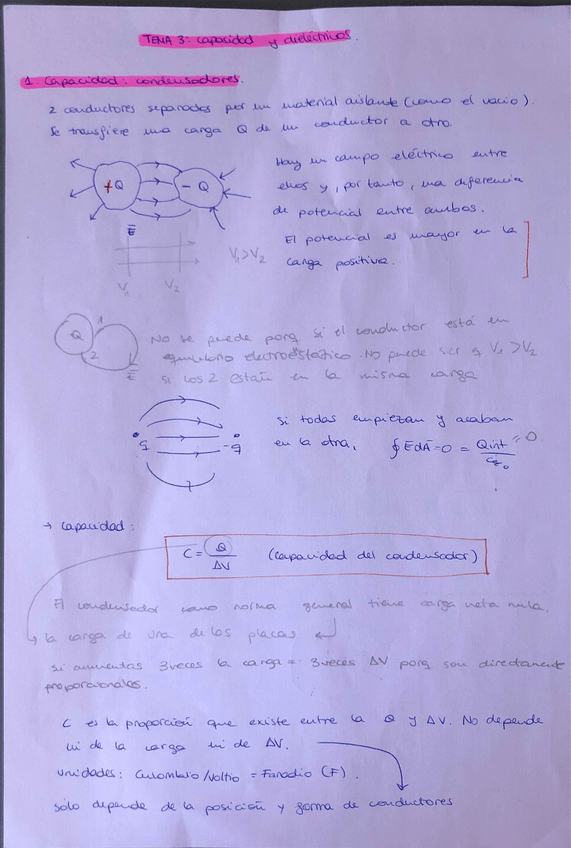 TEMA 3: capacidad y dieléctricos.
1. Capacidad: condensadores.
2 conductores separados por un material aislante (como el vacio).
Se transfiere una carga Q de un conductor a otro
+Q
-Q
Hay un campo eléctrico entre
ellos y, por tanto, una diferencia
de potencial entre ambos.
El potencial es mayor en la
carga positiva.
E
V₁>V₂
V₁
V₂
Q
1
2
E
No se puede porq si el conductor está en
equilibrio electroestático. No puede ser q V₁>V₂
si los 2 están en la misma carga
q
-q
si todas empiezan y acaban
en la otra, ∮EdA=0 = Qint/ε₀ = 0
→ Capacidad:
C = Q/ΔV (capacidad del condensador)
El condensador como norma general tiene carga neta nula.
la carga de una de las placas
si aumentas 3 veces la carga = 3 veces ΔV porq son directamente
proporcionales.
C es la proporción que existe entre la Q y ΔV. No depende
ni de la carga ni de ΔV.
unidades: Culombio/Voltio = Faradio (F).
solo depende de la posición y forma de conductores